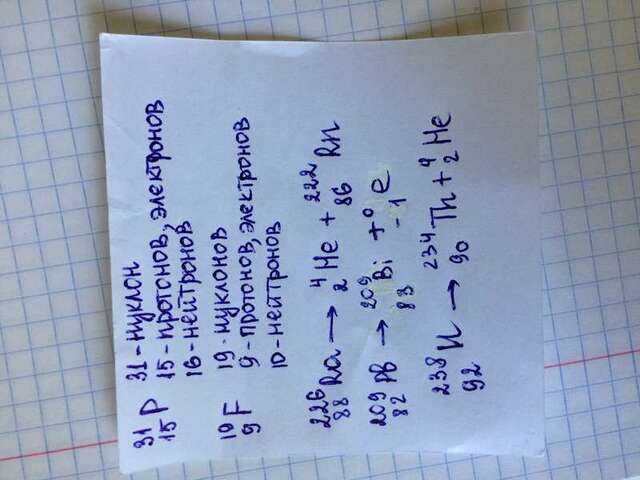 31 - нуклон
³¹₁₅P 15 - протонов, электронов
16 - нейтронов
19 - нуклонов
¹⁹₉F 9 - протонов, электронов
10 - нейтронов
²²⁶₈₈Ra → ⁴₂He + ²²²₈₆Rn
²⁰⁹₈₂Pb → ²⁰⁹₈₃Bi + ⁰₋₁e
²³⁸₉₂U → ²³⁴₉₀Th + ⁴₂He